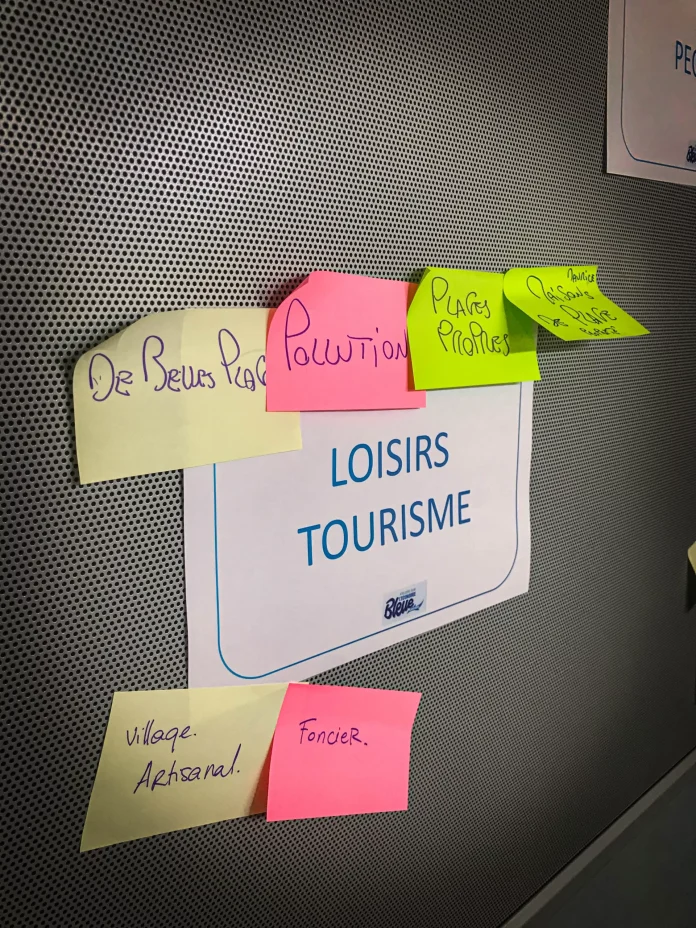 PEC
De Belles Plag
Pollution
Plages
Propres
Maurice
Maisons
de Plage
LOISIRS
TOURISME
Bleue
Village.
Artisanal.
Foncier.